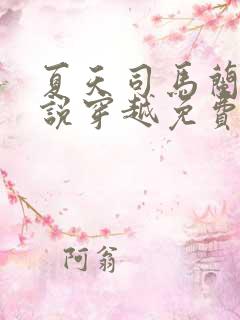 夏天司馬蘭
說穿越免費
阿翁